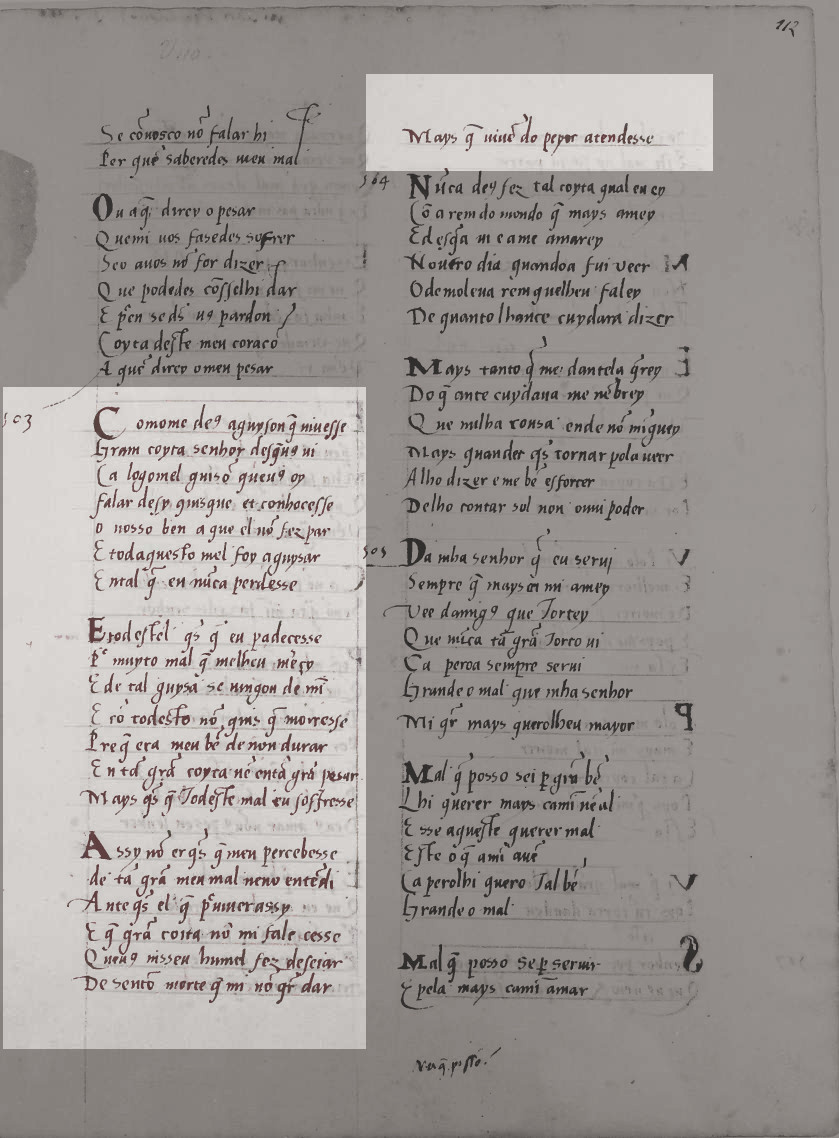 Se cõuosco nõ falar hi
Per que saberedes meu mal
Ou a q̃ direy o pesar
Que mi uos fasedes sofrer
Seo auos nõ for dizer
Que podedes cõsselhi dar
E
Coyta deste meu coraçõ
A que direy o meu pesar
503
Comome de9 aguyson q̃ niuesse
Gram coyta senhor desq̃u9 ui
Ca logomel guisõ queu9 oy
falar desy quisque et conhocesse
o nosso ben a que el nõ fez par
E todaquesto mel foy aguysar
Ental q̃ eu nũca perdesse
E todestel q̃s q̃ eu padecesse
muyto mal q̃ melheu
E de tal guysa se
E rõ todesto nõ quis q̃ morresse
Pre q̃ era meu bẽ de non durar
En tã grã coyta nẽ entã grã pesar
Mays q̃s q̃ todeste mal eu soffresse
Assy nõ er q̃s q̃ meu percebesse
de tã grã meu mal neno entẽdi
Ante q̃s el q̃ uiuer assy
E q̃ grã coita nõ mi fale cesse
Queu9 nisseu humel fez deseiar
De sentõ morte q̃ mi nõ q̃r dar
112
Mays q̃ uiuẽdo peyor atendesse
504
Nũca de9 fez tal coyta qual eu ey
Cõ a rem do mondo q̃ mays amey
E desq̃a ui e ame amarey
Noutro dia quandoa fui ueer
O demo leua rem quelheu faley
De quanto lhante cuydara dizer
Mays tanto q̃ me dantela q̃rey
Do q̃ ante cuydaua me nẽbrey
Que nulha cousa ende nõ minguey
Mays quander q̃s tornar pola ueer
A lho dizer e me bẽ esforcer
De lho contar sol non ouui poder
505
Da mha senhor q̃ eu serui
Sempre q̃ mays ca mi amey
Veedamig9 que tortey
Que nũca tã grã torto ui
Ca peroa sempre serui
Grande o mal que mha senhor
Mi q̃r mays querolheu mayor
Mal q̃ posso sei p̱ grã bẽ
Lhi querer mays camĩ nẽ al
E sse aqueste querer mal
Este o q̃ ami auẽ
Ca perolhi quero tal bẽ
Grande o mal
Mal q̃ posso se p̱ seruir
E pela mays camĩ amar